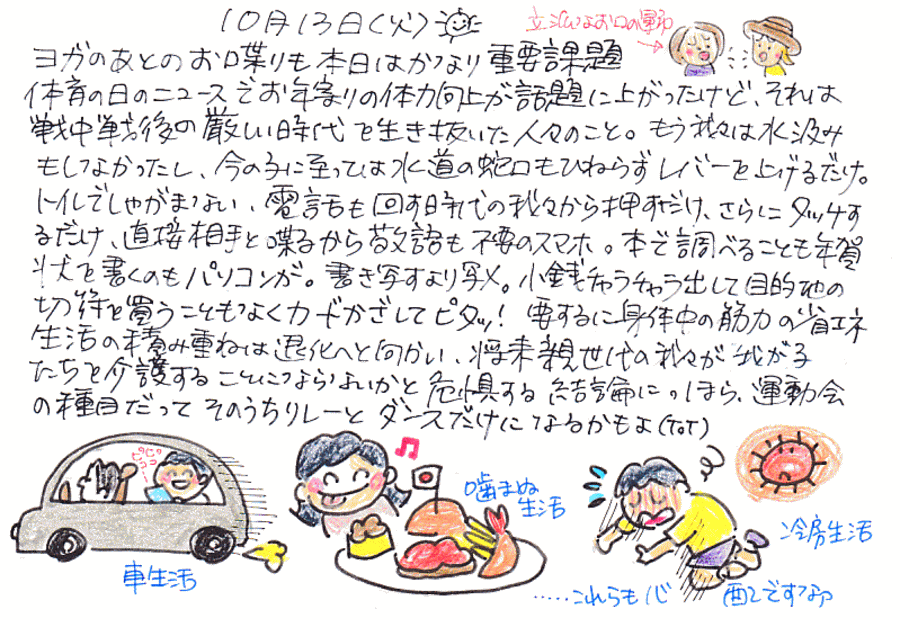 10月13日(火)
立派なお口の運動
ヨガのあとのお喋りも本日はかなり重要課題
体育の日のニュースでお年寄りの体力向上が話題に上がったけど、それは
戦中戦後の厳しい時代を生き抜いた人々のこと。もう我々は水汲み
もしなかったし、今の子に至っては水道の蛇口もひねらずレバーを上げるだけ。
トイレでしゃがまない、電話も回す時代の我々から押すだけ、さらにタッチす
るだけ、直接相手と喋るから敬語も不要のスマホ。本で調べることも年賀
状を書くのもパソコンが。書き写すより写メ。小銭チャラチャラ出して目的地の
切符を買うこともなくカードかざしてピタッ!要するに身体中の筋力の省エネ
生活の積み重ねは退化へと向かい、将来親世代の我々が我が子
たちを介護することにならないかと危惧する結論に。ほら、運動会
の種目だってそのうちリレーとダンスだけになるかもよ(ToT)
ピコピコ
車生活
噛まぬ
生活
冷房生活
.....これらも心配ですな